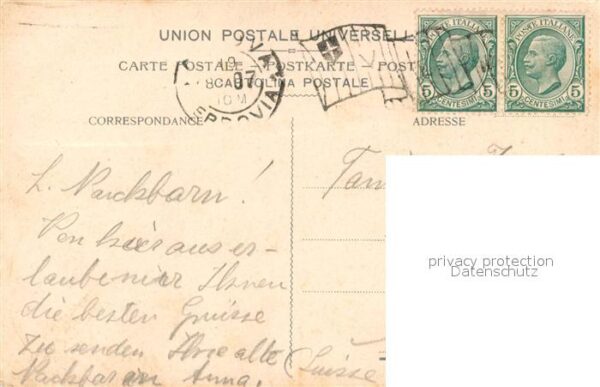 UNION POSTALE UNIVERSELLE
CARTE POSTALE – POSTKARTE – POST
CARTOLINA POSTALE
OVA
19
8 07
10 M
FERROVIA
POSTE ITALIANE
5 5
CENTESIMI
POSTE ITALIANE
5 5
CENTESIMI
CORRESPONDANCE
ADRESSE
L. Nackbarn!
Von hier aus er-
laube mir Ihnen
die besten Grüsse
zu senden Ihre alte
Nackbarin Anna.
Suisse
privacy protection
Datenschutz